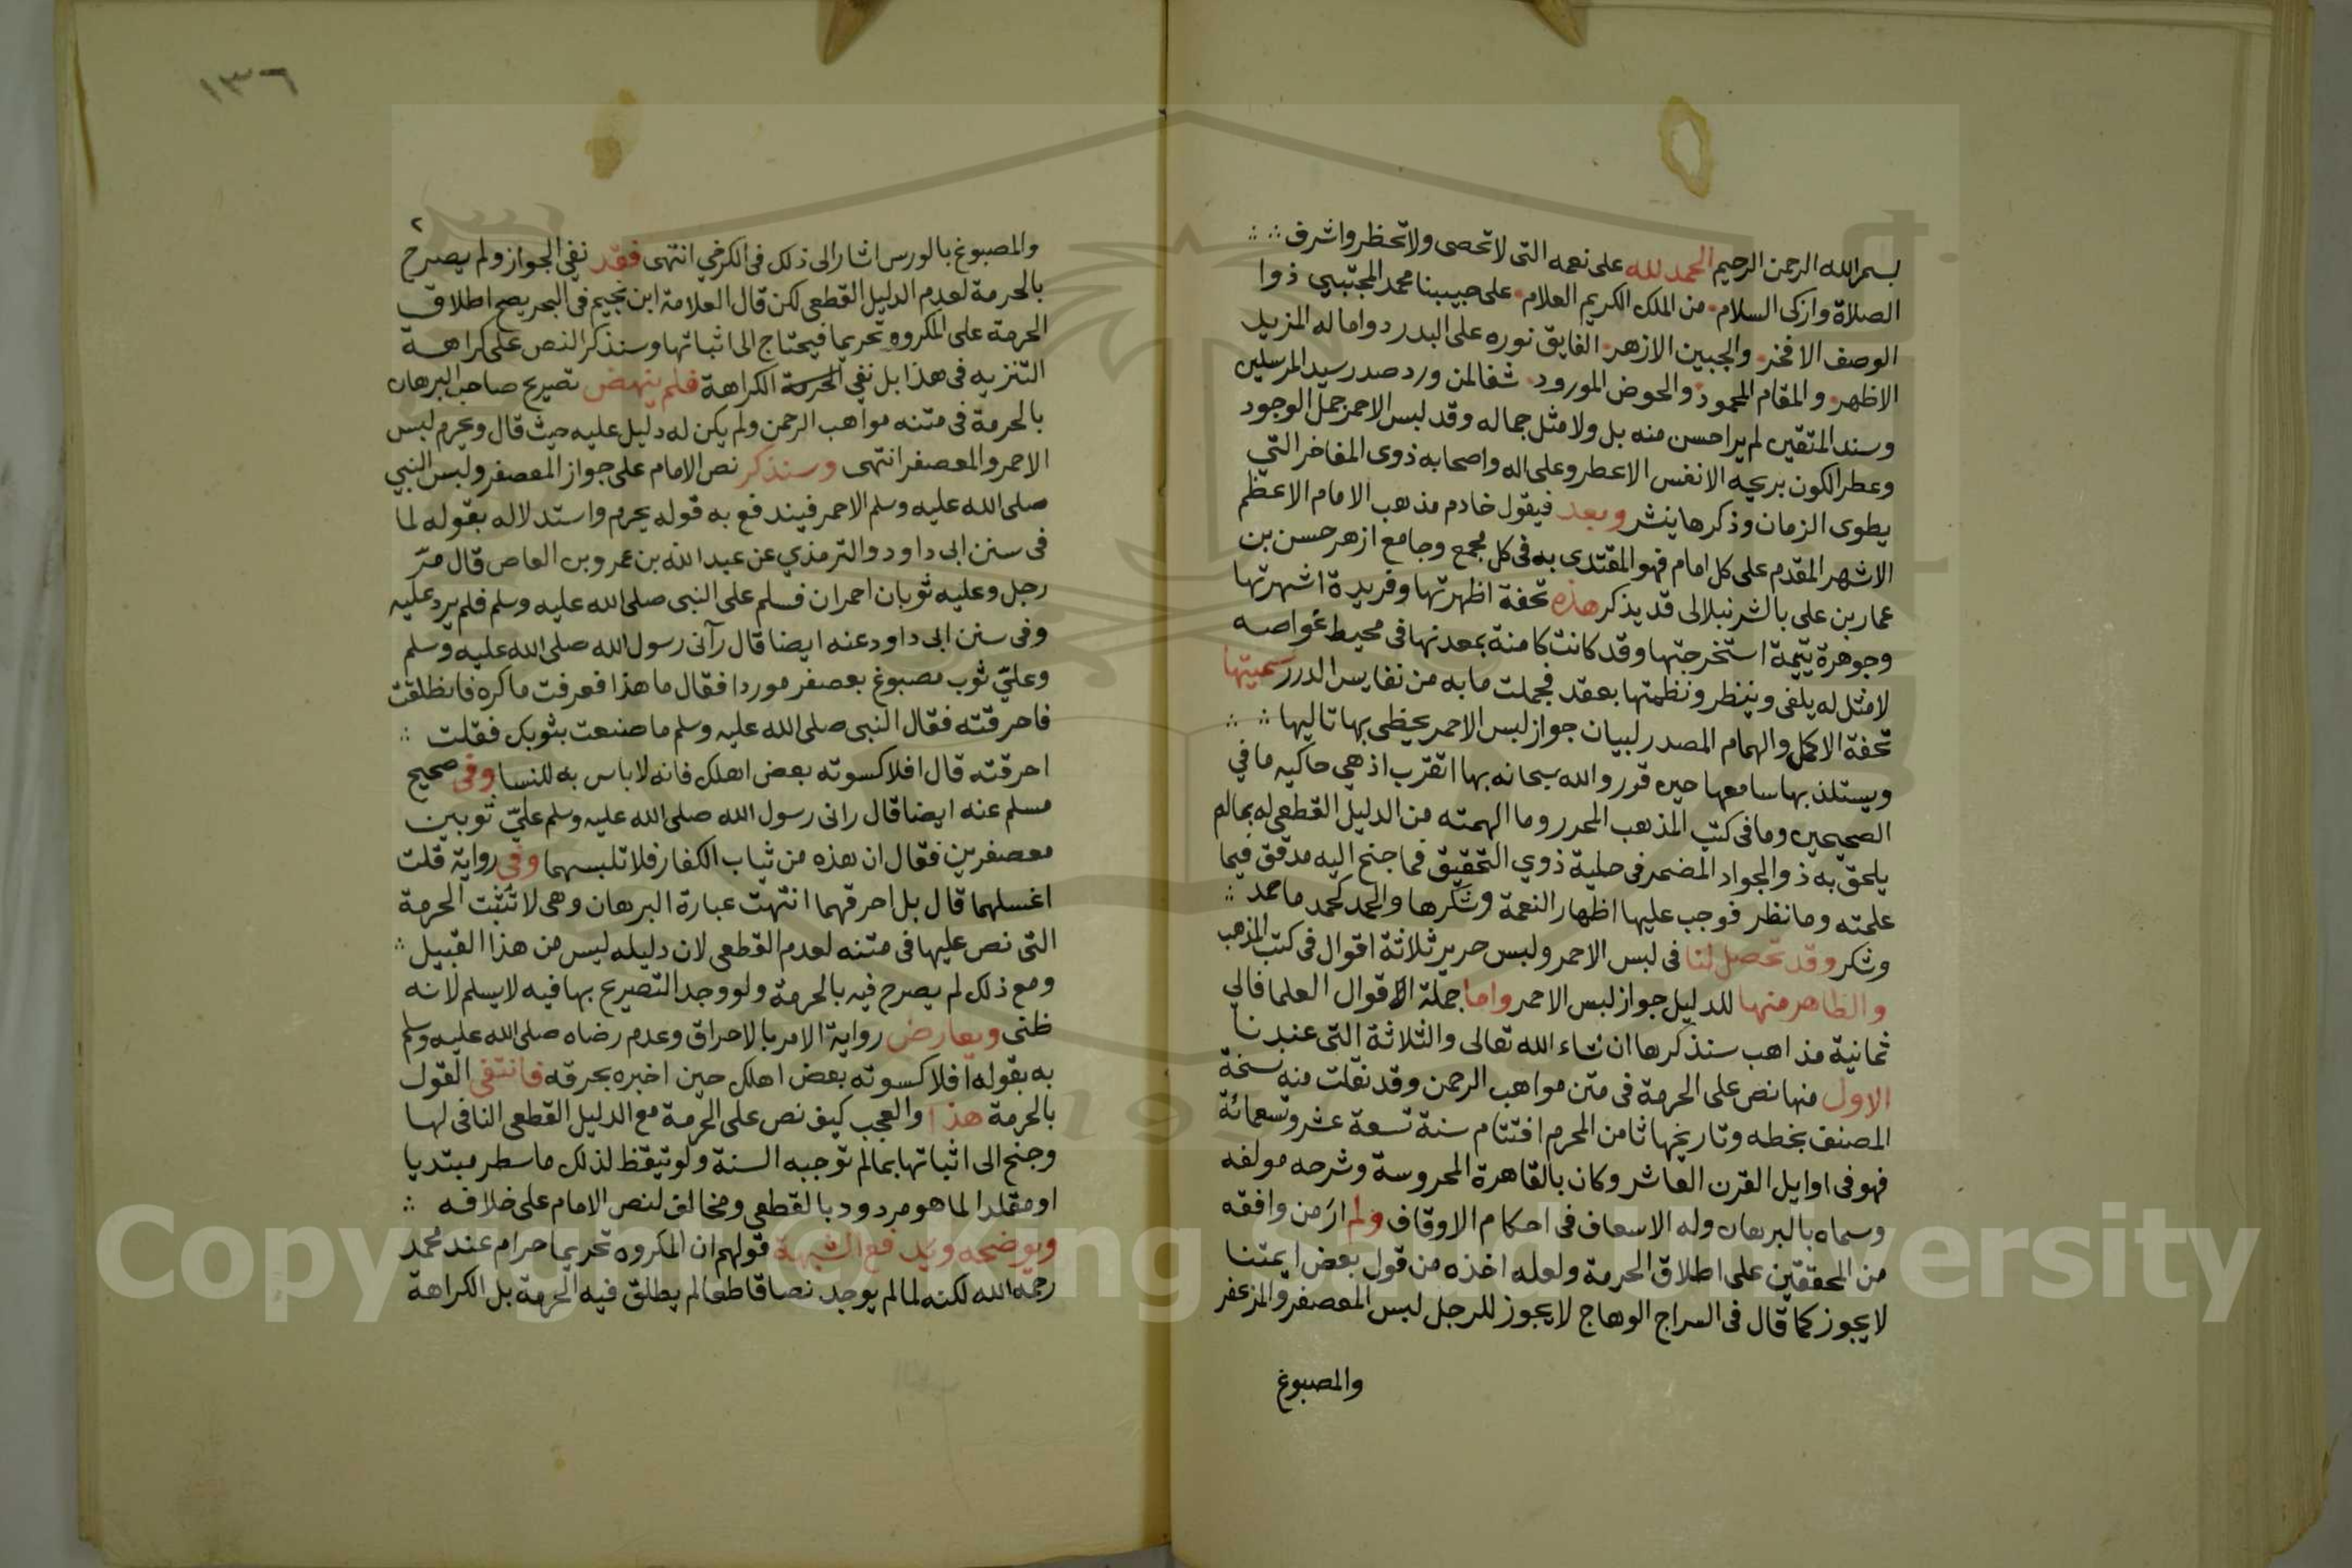 بسم الله الرحمن الرحيم الحمد لله على نعمه التى لا تحصى ولا تحظر واشرف
الصلاة وازكى السلام من الملك الكريم العلام على حبيبنا محمد المجتبى ذوا
الوصف الافخر والجبين الازهر الفايق نوره على البدر دواما له المزيد
الاظهر والمقام المحمود والحوض المورود شفا لمن ورد صدر سيد المرسلين
وسند المتقين لم ير احسن منه بل ولا مثل جماله وقد لبس الاحمر جمل الوجود
وعطر الكون بريحه الانفس الاعطر وعلى اله واصحابه ذوى المفاخر التي
يطوى الزمان وذكرها ينشر وبعد فيقول خادم مذهب الامام الاعظم
الاشهر المقدم على كل امام فهو المقتدى به فى كل مجمع وجامع ازهر حسن بن
عمار بن على بالشرنبلالى قد يذكر هذه تحفة اظهرتها وفريدة اشهرتها
وجوهرة يتيمة استخرجتها وقد كانت كامنة بمعدنها فى محيط غواصه
لا مثل له يلفى وينظر ونظمتها بعقد فجملت ما به من نفايس الدرر سميتها
تحفة الاكمل والهمام المصدر لبيان جواز لبس الاحمر يحظى بها تاليها
ويستلذ بها سامعها حيره قور والله سبحانه بها اتقرب اذ هي حاكيه ما في
الصحيحين وما فى كتب المذهب المحرر وما الهمته من الدليل القطعى له بما لم
يلحق به ذو الجواد المضمر فى حلية ذوي التحقيق فما جنح اليه مدقق فيما
علمته وما نظر فوجب عليها اظهار النعمة وشكرها والحمد كحمد ما حمد
وشكر وقد تحصل لنا فى لبس الاحمر ولبس حرير ثلاثة اقوال فى كتب المذهب
والظاهر منها للدليل جواز لبس الاحمر واما جملة الاقوال العلما فالي
ثمانية مذاهب سنذكرها ان شاء الله تعالى والثلاثة التى عندنا
الاول منها نص على الحرمة فى متن مواهب الرحمن وقد نقلت منه نسخة
المصنف بخطه وتاريخها ثامن المحرم افتتام سنة تسعة عشر وتسعمائة
فهو فى اوايل القرن العاشر وكان بالقاهرة المحروسة وشرحه مولفه
وسماه بالبرهان وله الاسعاف فى احكام الاوقاف ولم ار من وافقه
من المحققين على اطلاق الحرمة ولعله اخذه من قول بعض ايمتنا
لا يجوز كما قال فى السراج الوهاج لا يجوز للرجل لبس المعصفر والمزعفر
والمصبوغ
١٣٦
٢
والمصبوغ بالورس اشار الى ذلك فى الكرخي انتهى فقد نفى الجواز ولم يصرح
بالحرمة لعدم الدليل القطعى لكن قال العلامة ابن نجيم فى البحر يصح اطلاق
الحرمة على المكروه تحريما فيحتاج الى اثباتها وسنذكر النص على كراهة
التنزيه فى هذا بل نفي الحرمة الكراهة فلم ينهض تصريح صاحب البرهان
بالحرمة فى متنه مواهب الرحمن ولم يكن له دليل عليه حيث قال ويحرم لبس
الاحمر والمعصفر انتهى وسنذكر نص الامام على جواز المعصفر ولبس النبي
صلى الله عليه وسلم الاحمر فيندفع به قوله يحرم واستدلاله بقوله لما
فى سنن ابى داود والترمذي عن عبد الله بن عمرو بن العاص قال مرّ
رجل وعليه ثوبان احمران فسلم على النبى صلى الله عليه وسلم فلم يرد عليه
وفى سنن ابى داود عنه ايضا قال رآنى رسول الله صلى الله عليه وسلم
وعليّ ثوب مصبوغ بعصفر موردا فقال ما هذا فعرفت ما كره فانطلقت
فاحرقته فقال النبى صلى الله عليه وسلم ما صنعت بثوبك فقلت
احرقته قال افلا كسوته بعض اهلك فانه لا باس به للنسا وفى صحيح
مسلم عنه ايضا قال رانى رسول الله صلى الله عليه وسلم عليّ ثوبين
معصفرين فقال ان هذه من ثياب الكفار فلا تلبسهما وفى رواية قلت
اغسلهما قال بل احرقهما انتهت عبارة البرهان وهى لا تثبت الحرمة
التى نص عليها فى متنه لعدم القطعى لان دليله ليس من هذا القبيل
ومع ذلك لم يصرح فيه بالحرمة ولو وجد التصريح بها فيه لا يسلم لانه
ظنى ويعارض رواية الامر بالاحراق وعدم رضاه صلى الله عليه وسلم
به بقوله افلا كسوته بعض اهلك حين اخبره بحرقه فانتفى القول
بالحرمة هذا والعجب كيف نص على الحرمة مع الدليل القطعى النافى لها
وجنح الى اثباتها بما لم توجبه السنة ولو تيقظ لذلك ما سطر مبتديا
او مقلدا لما هو مردود بالقطعى ومخالف لنص الامام على خلافه
ويوضحه ويدفع الشبهة قولهم ان المكروه تحريما حرام عند محمد
رحمه الله لكنه لما لم يوجد نصا قاطعا لم يطلق فيه الحرمة بل الكراهة
Copyright © King Saud University